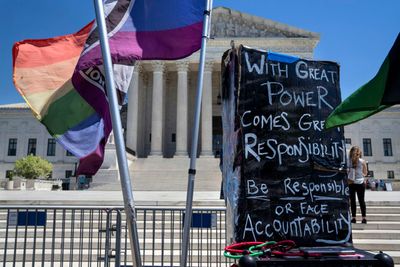 With Great
Power
Comes Great
Responsibility
Be Responsible
or Face
Accountability